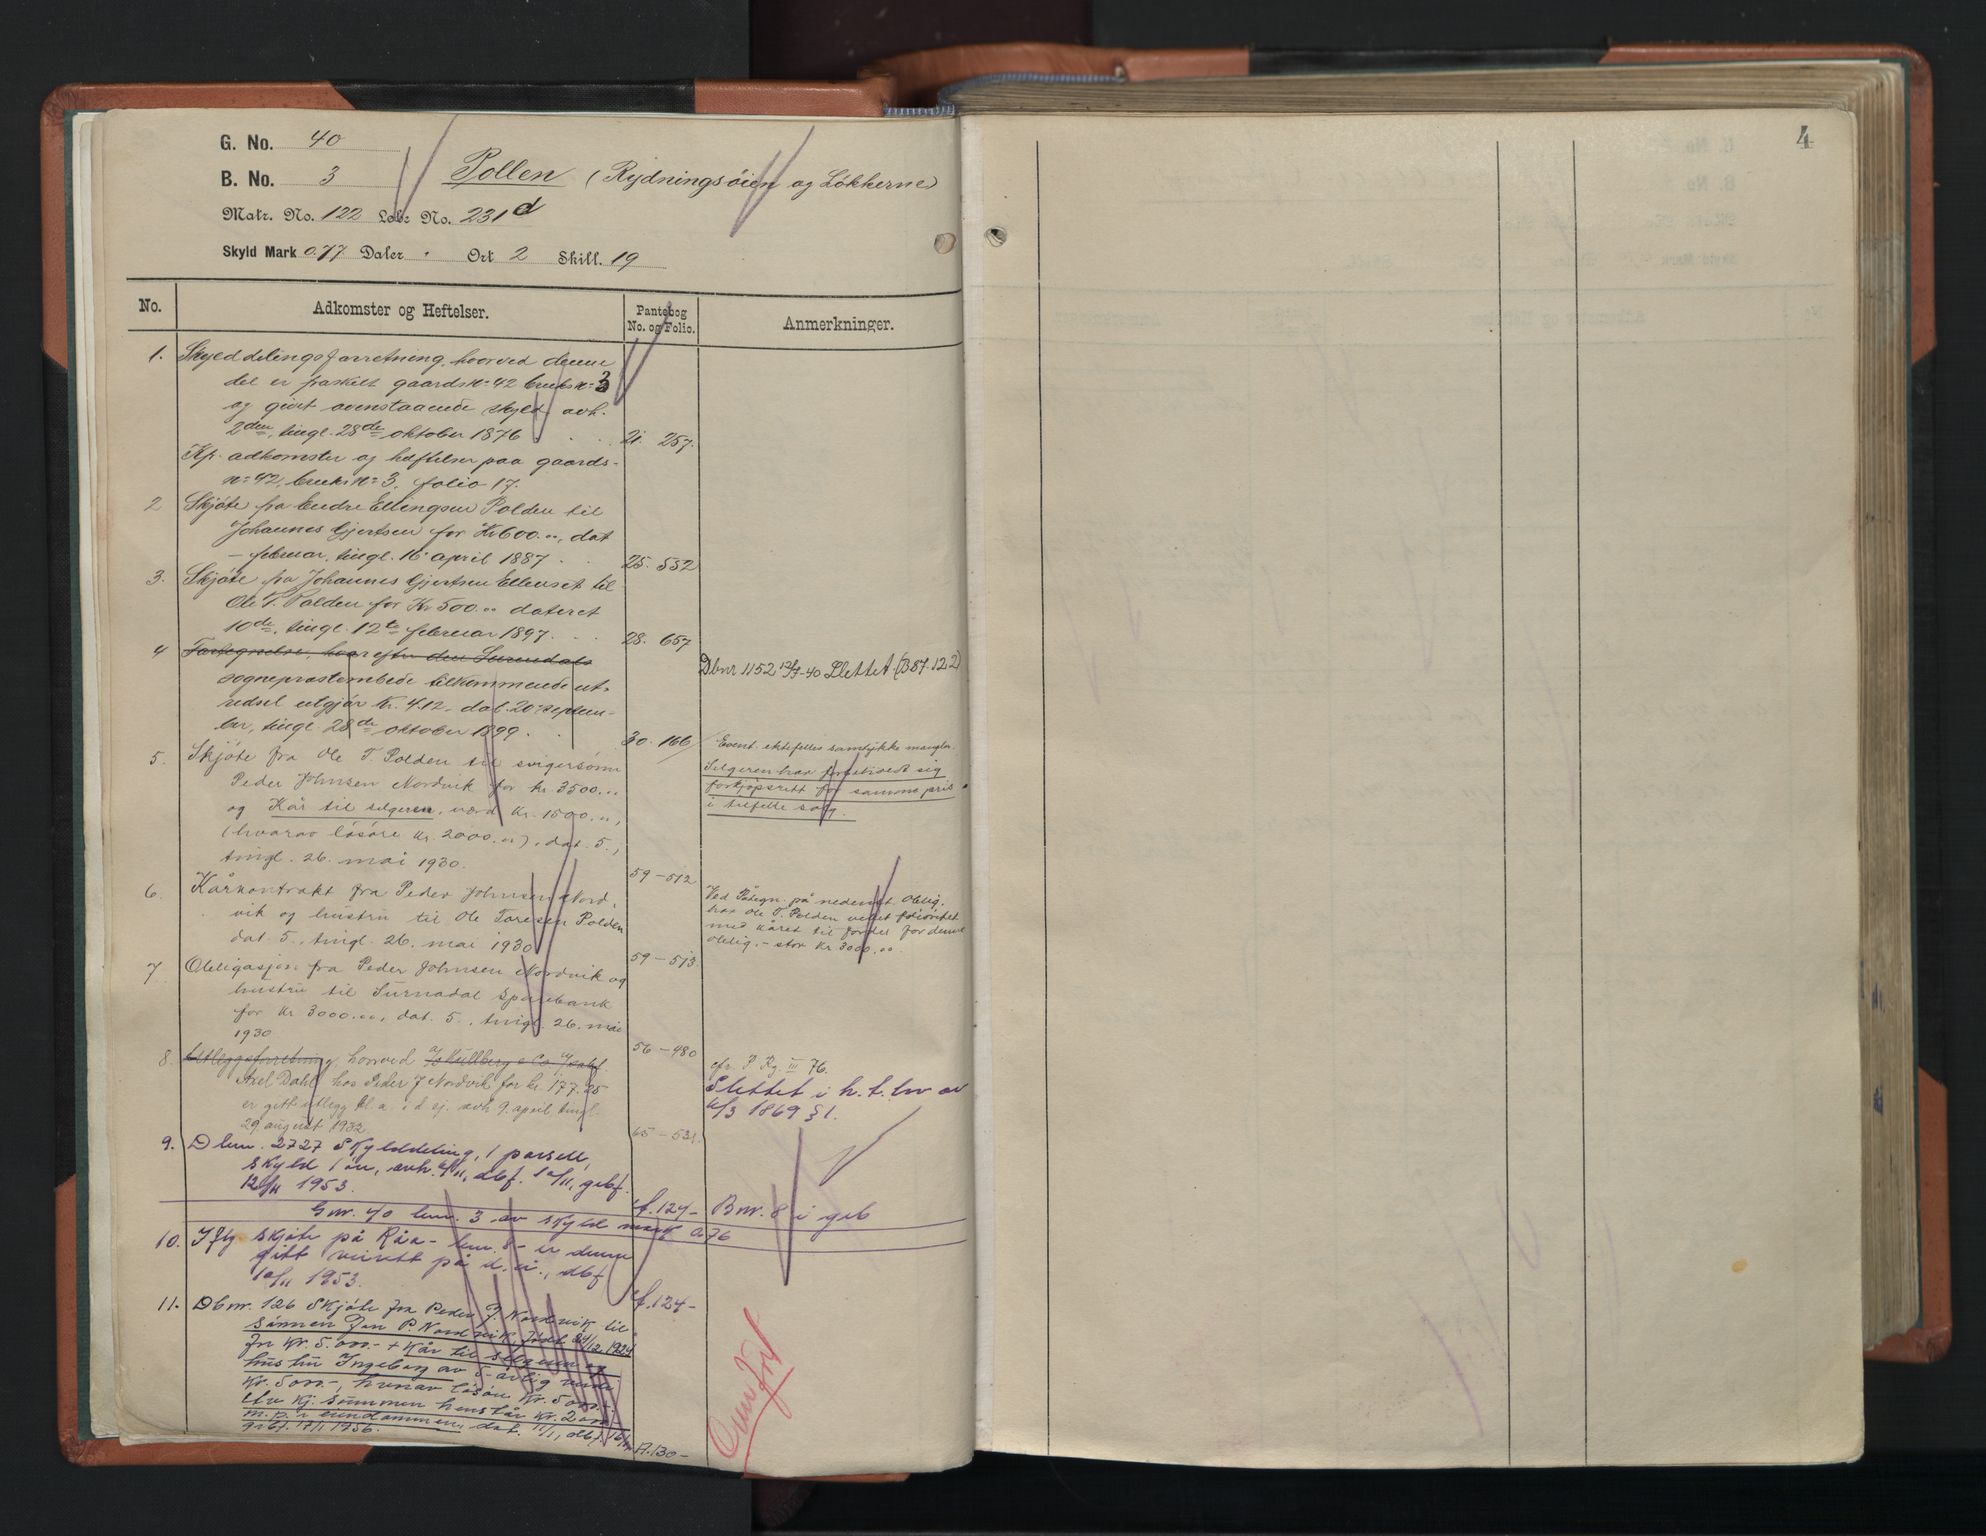 4
G. No. 40
B. No. 3
Pollen (Rydningsöien og Løkkerne)
Matr. No. 122 Løb: No. 231 d
Skyld Mark 0.77 Daler . Ort 2 Skill. 19
No. Adkomster og Heftelser. Pantebog No. og Folio. Anmerkninger.
1. Skylddelingsforretning, hvorved denne
del er fraskilt gaards nº 42 bruks nº 3
og givet ovenstaaende skyld, avh.
2den, tingl. 28de oktober 1876 . . . 21. 257.
Kfr. adkomster og heftelser paa gaards-
nº 42, bruks nº 3, folio 17.
2 Skjöte fra Endre Ellingsen Polden til
Johannes Gjertsen for Kr 600.,, dat
- februar, tingl. 16. april 1887 . . 25. 532
3. Skjöte fra Johannes Gjertsen Ellenset til
Ole T. Polden for Kr 500.,, dateret
10de, tingl. 12te februar 1897. . . 28. 657
4 Fortegnelse, hvorefter den Surendals
sogneprestembede tilkommende ut-
redsel utgjør kr. 4.12, dat. 20. septem-
ber, tingl. 28de oktober 1899. . . 30. 166
Dbnr 1152 12/7-40 Slettet (B 87-122)
5. Skjöte fra Ole T. Polden til svigersønn
Peder Johnsen Nordvik for kr 3500.,,
og Kår til selgeren, værd kr. 1500.,,,
(hvorav løsøre kr. 2000.,,), dat. 5.,
tingl. 26. mai 1930. 59-512
Event. ektefelles samtykke mangler.
Selgeren har forbeholdt sig
forkjøpsrett for samme pris
i tilfelle salg.
6. Kårkontrakt fra Peder Johnsen Nord-
vik og hustru til Ole Toresen Polden
dat. 5., tingl. 26. mai 1930 59-513.
Ved Påtegn. på nedenst. Oblig.
har Ole T. Polden veket prioritet
med kåret til fordel for denne
oblig. - stor Kr 3000.,,
7 Obligasjon fra Peder Johnsen Nordvik og
hustru til Surnadal Sparebank
for kr 3000.,,, dat. 5., tingl. 26. mai
1930. 56-480
8. Utleggsforretning, hvorved A/S Kullberg & Co
Axel Dahl hos Peder J Nordvik for kr. 177.25
er gitt utlegg bl. a. i d. ej. avh 9. april tingl.
29 august 1932. 65-531.
cfr. P. Rg. III 76.
Slettet i h. t. lov av
6/3 1869 § 1.
9. Dbnr. 2727 Skylddeling, 1 parsell,
skyld 1 øre, avh. 4/11, dbf. 10/11, gebf.
12/11 1953. f. 124- Bnr. 8 i geb
Gnr. 40 bnr. 3 av skyld mark 0.76
10. Iflg skjøte på Råa - bnr. 8 - er denne
gitt veirett på d. e., dbf
10/11 1953. f. 124-
11. Dbnr. 126 Skjøte fra Peder J. Nordvik til
sönnen Jon P. Nordvik, født 24/12.1924
for kr. 5.000.- + Kår til selgeren og
hustru Ingeborg av 5-årlig verdi
kr. 5000.-, hvorav løsøre kr. 5000.-.
Av kj. summen henstår kr. 2000
m. p. i eiendommen, dat. 11/1, dbf. 16/1
gebf. 17/1 1956. A. 130-
Overført